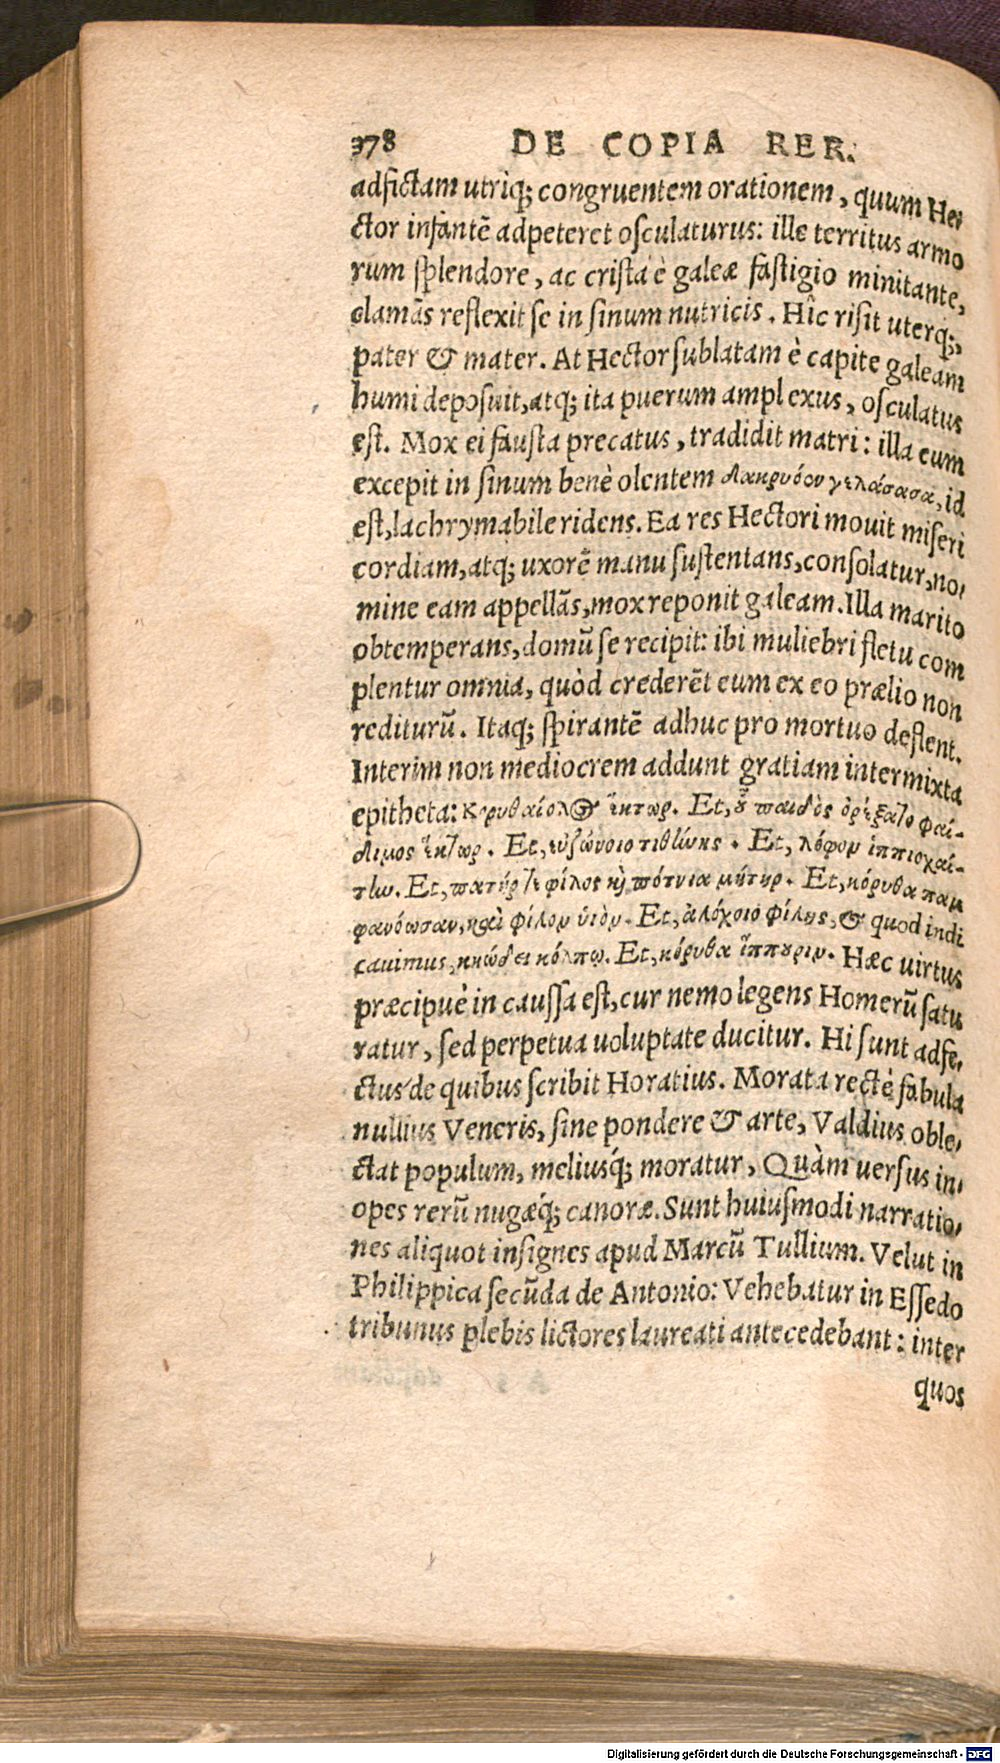 378 DE COPIA RER.
adfictam utriq; congruentem orationem, quum He/
ctor infantē adpeteret osculaturus: ille territus armo
rum splendore, ac crista è galeæ fastigio minitante,
clamās reflexit se in sinum nutricis. Hîc risit uterq;,
pater & mater. At Hector sublatam è capite galeam
humi deposuit, atq; ita puerum amplexus, osculatus
est. Mox ei fausta precatus, tradidit matri: illa eum
excepit in sinum benè olentem δακρυόεν γελάσασα, id
est, lachrymabile ridens. Ea res Hectori mouit miseri
cordiam, atq; uxorē manu sustentans, consolatur, no/
mine eam appellās, mox reponit galeam. Illa marito
obtemperans, domū se recipit: ibi muliebri fletu com
plentur omnia, quòd crederēt eum ex eo prælio non
rediturū. Itaq; spirantē adhuc pro mortuo deflent.
Interim non mediocrem addunt gratiam intermixta
epitheta: Κορυθαίολος ἕκτωρ. Et, οὗ παιδὸς ὀρέξατο φαί-
διμος ἕκτωρ. Et, εὐζώνοιο τιθήνης. Et, λόφον ἱππιοχαί-
την. Et, πατήρ τε φίλος καὶ πότνια μήτηρ. Et, κόρυθα παμ
φανόωσαν, καὶ φίλον υἱὸν. Et, ἀλόχοιο φίλης, & quod indi
cauimus, κηώδει κόλπῳ. Et, κόρυθα ἵππουριν. Hæc uirtus
præcipuè in caussa est, cur nemo legens Homerū satu
ratur, sed perpetua uoluptate ducitur. Hi sunt adfe/
ctus de quibus scribit Horatius. Morata rectè fabula
nullius Veneris, sine pondere & arte, Valdius oble/
ctat populum, meliusq́; moratur, Quàm uersus in/
opes rerū nugæq́; canoræ. Sunt huiusmodi narratio/
nes aliquot insignes apud Marcū Tullium. Velut in
Philippica secūda de Antonio: Vehebatur in Essedo
tribunus plebis lictores laureati antecedebant: inter
quos
Digitalisierung gefördert durch die Deutsche Forschungsgemeinschaft - DFG